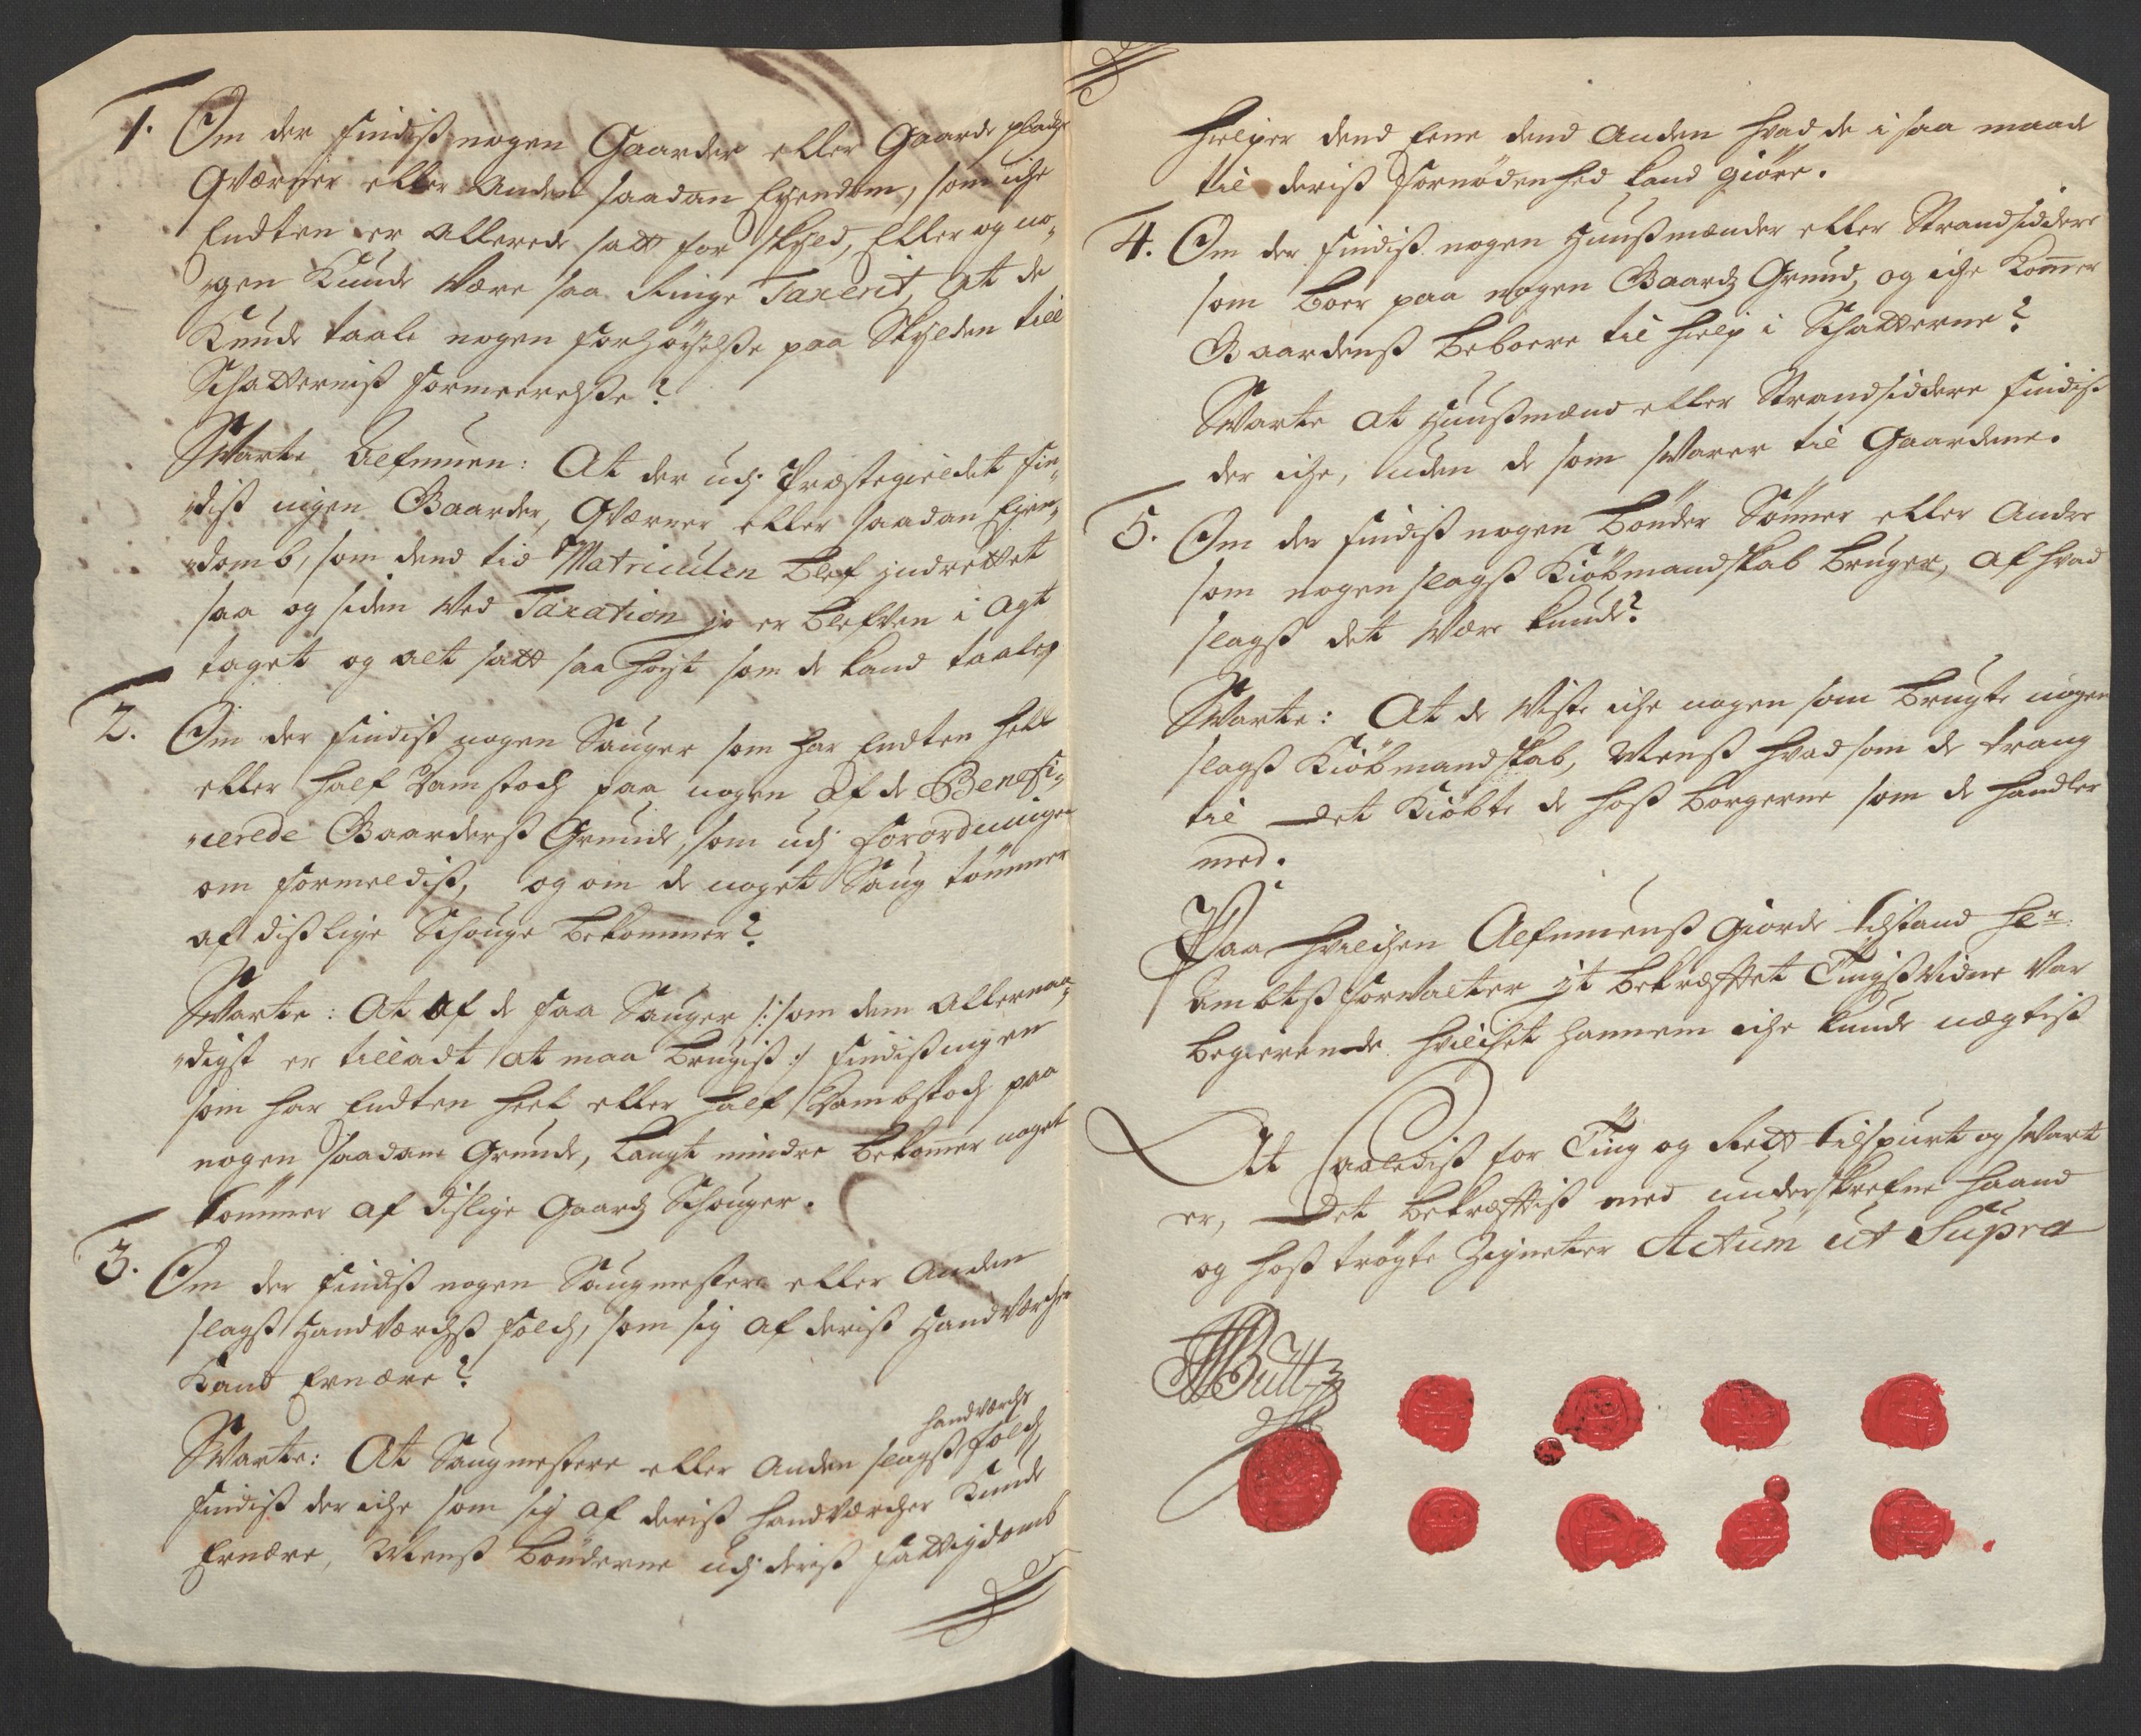 1. Om der findiß nogen Gaarder eller Gaarde pladtze
Qværner eller Anden saadan Eyendom, som iche
Endten er allerede satt for skyld, Eller og no„
„gen Kunde være saa Ringe Taxerit, At de
Kunde taale nogen forhøyelße paa Skylden till
Schatterniß formeerelße?
Svarte Alfmuen: At der udj Præstegieldet fin„
„diß ingen Gaarder, Qværner eller saadan Eyen„
„domb, som dend tid Matriculen blef indrettet
saa og siden ved Taxation jo er blefven i agt
taget og alt satt saa høyt som de kand taale,
2. Om der findiß nogen Sauger som har Endten hell
eller half Damstoch paa nogen Af de Benefi„
„cerede Gaarderß Grunde, som udj forordningen
om formeldiß, og om de noget Saug tømmer
af dißlige Schouge bekommer?
Svarte: At Af de faa Sauger /: som dem allernaa„
„digst er tilladt at maa brugiß :/ findiß ingen
som har Endten heel eller half Dambstoch paa
nogen saadane Grunde, langt mindre bekomer noget
tømmer af dislige Gaardz Schouger.
3. Om der findiß nogen Saugmestere eller Anden
slagß Handværchß folch, som sig af deriß Handværcher
Kand Ernære?
Svarte: At Saugmestere eller Anden slagß handværchs folch,
findiß der iche som sig af deriß handværcher Kunde
Ernære, Menß bønderne udj deriß fattigdomb
hielper dend Eene dend Anden hvad de i saa maade
til deriß fornødenhed kand giøre.
4. Om der findiß nogen Huußmænder eller Strandsiddere
som boer paa nogen Gaardz Grund, og iche komer
Gaardenß beboere til hielp i Schatterne?
Svarte At Huußmænd eller Strandsiddere findiß
der iche, uden de som svarer til Gaardene.
5. Om der findiß nogen bønder Sønner eller Andre
som nogen slagß Kiøbmandskab bruger, af hvad
slagß det være kunde?
Svarte: At de viste iche nogen som brugte nogen
slagß Kiøbmandskab, Menß hvad som de trang
til det Kiøbte de hoß borgerne som de handler
med.
Paa hvilchen Alfmuenß giorde tilstand Hr:
Ambtß forvalter it bekræfftet Tingßvidne var
begierende hvilchet hannem iche kunde nægtiß
At saalediß for Ting og Rett tilspurt og svart
er, Det bekræfftiß med underskrefne haand
og hoß trøgte Zigneter Actum ut Supra